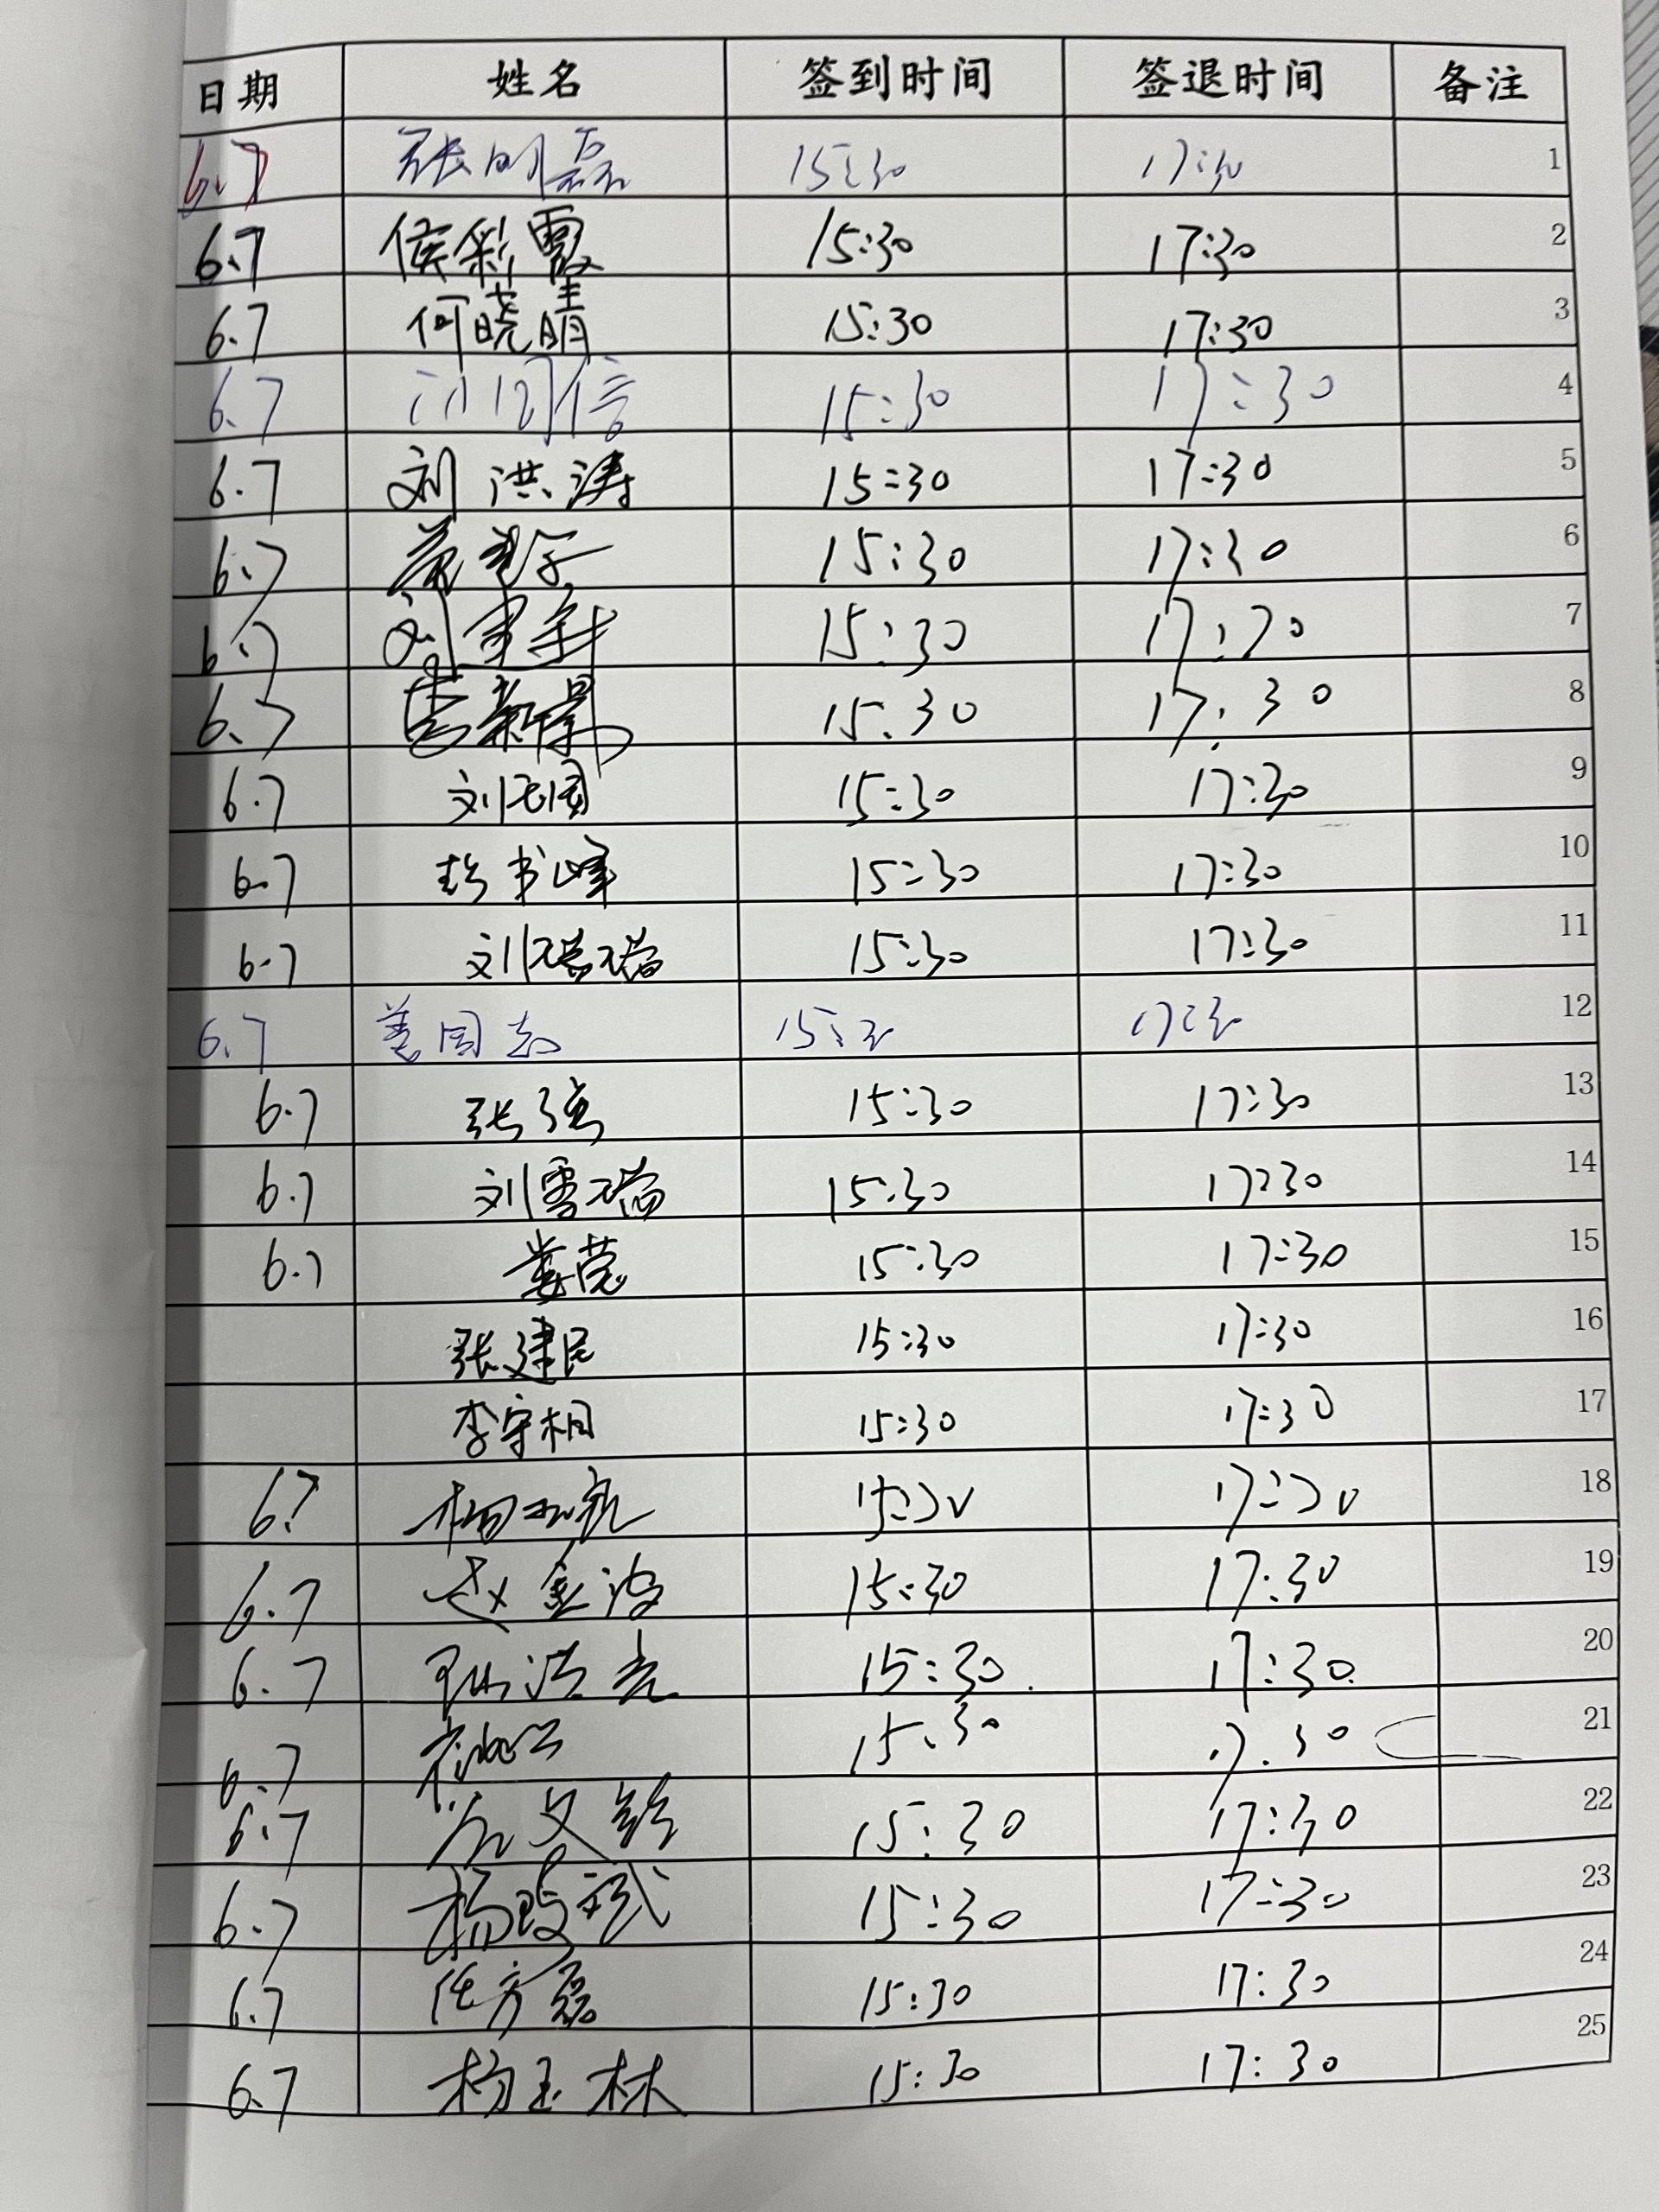 日期 姓名 签到时间 签退时间 备注
6.7 张明磊 15:30 17:30 1
6.7 侯彩霞 15:30 17:30 2
6.7 何晓晴 15:30 17:30 3
6.7 15:30 17:30 4
6.7 刘洪涛 15:30 17:30 5
6.7 15:30 17:30 6
6.7 刘 15:30 17:30 7
6.7 15:30 17:30 8
6.7 刘民国 15:30 17:30 9
6.7 书峰 15:30 17:30 10
6.7 刘瑞 15:30 17:30 11
6.7 姜国志 15:30 17:30 12
6.7 张强 15:30 17:30 13
6.7 刘雪瑞 15:30 17:30 14
6.7 娄莹 15:30 17:30 15
张建民 15:30 17:30 16
李宇相 15:30 17:30 17
6.7 杨 15:30 17:30 18
6.7 赵金波 15:30 17:30 19
6.7 洪亮 15:30 17:30. 20
6.7 15.30 17.30 21
6.7 文 15:30 17:30 22
6.7 杨 15:30 17:30 23
6.7 任方磊 15:30 17:30 24
6.7 杨玉林 15:30 17:30 25